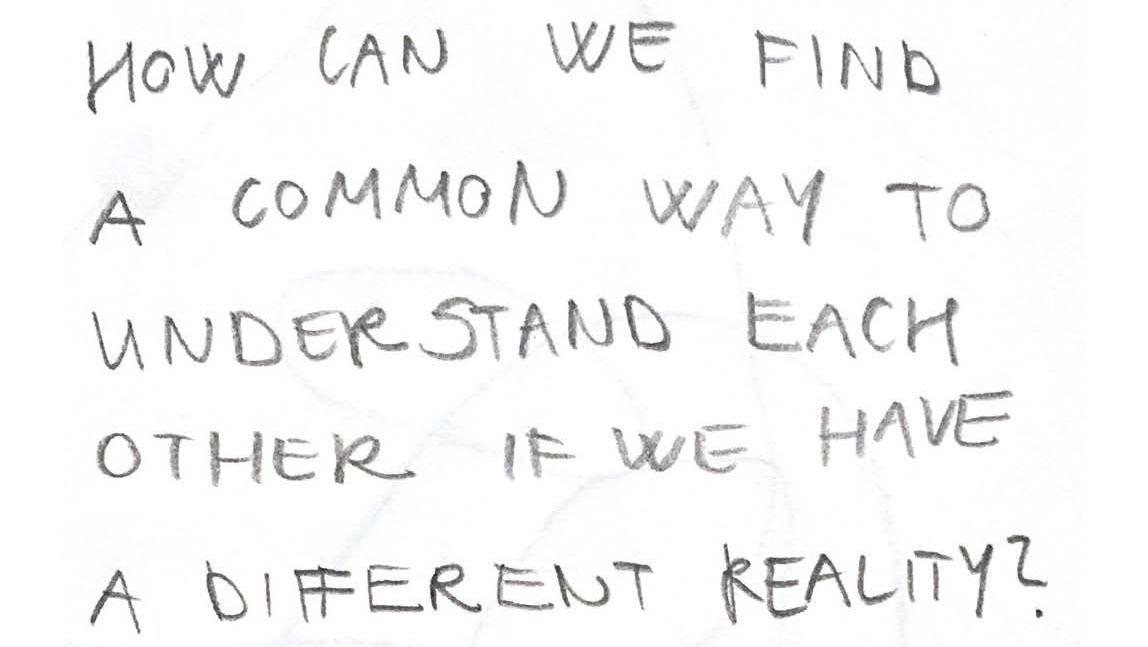 HOW CAN WE FIND
A COMMON WAY TO
UNDERSTAND EACH
OTHER IF WE HAVE
A DIFFERENT REALITY?